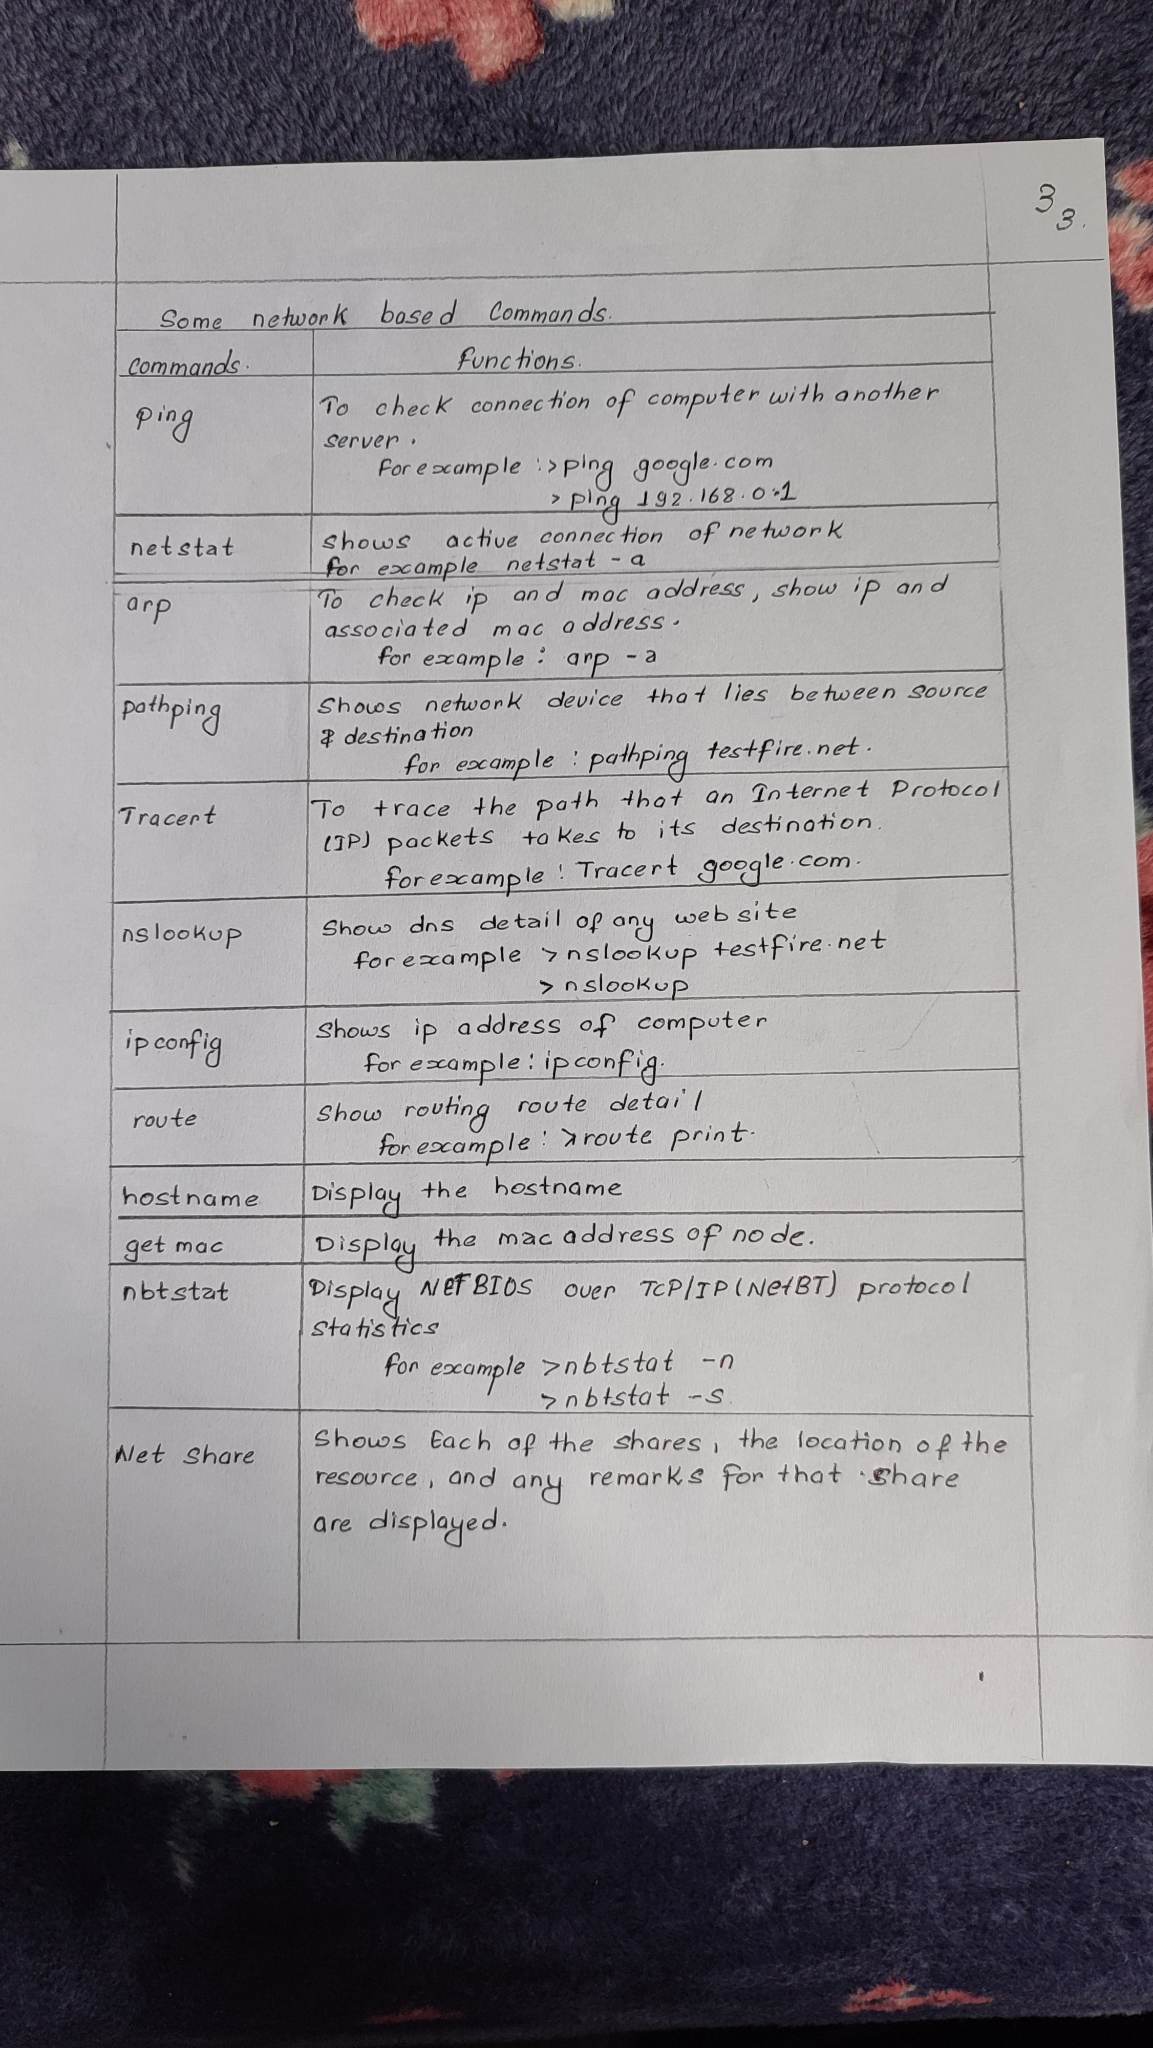 3
3.
Some network based Commands.
Commands. Functions.
Ping To check connection of computer with another
server.
For example :>ping google.com
>ping 192.168.0.1
netstat Shows active connection of network
for example netstat -a
arp To check ip and mac address, show ip and
associated mac address.
for example : arp -a
pathping Shows network device that lies between source
& destination
for example : pathping testfire.net.
Tracert To trace the path that an Internet Protocol
(IP) packets takes to its destination.
for example : Tracert google.com.
nslookup Show dns detail of any web site
for example >nslookup testfire.net
>nslookup
ipconfig Shows ip address of computer
for example : ipconfig.
route Show routing route detail
for example : >route print.
hostname Display the hostname
getmac Display the mac address of node.
nbtstat Display NETBIOS over TCP/IP (NetBT) protocol
Statistics
for example >nbtstat -n
>nbtstat -s.
Net Share Shows Each of the shares, the location of the
resource, and any remarks for that share
are displayed.